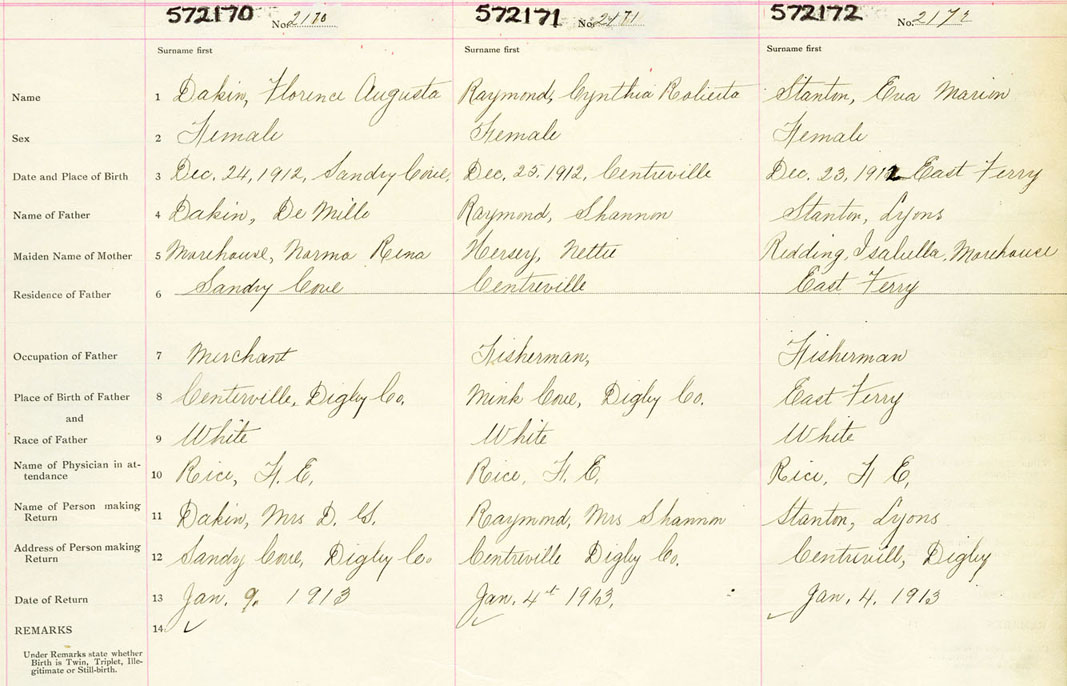 572170 No. 2170 572171 No. 2171 572172 No. 2172
Surname first Surname first Surname first
Name 1 Dakin, Florence Augusta Raymond, Cynthia Roberta Stanton, Eva Marion
Sex 2 Female Female Female
Date and Place of Birth 3 Dec. 24, 1912, Sandy Cove, Dec. 25. 1912, Centreville Dec. 23, 1912 East Ferry
Name of Father 4 Dakin, De Mille Raymond, Shannon Stanton, Lyons
Maiden Name of Mother 5 Morehouse, Norma Rena Hersey, Nettie Redding, Isabella Morehouse
Residence of Father 6 Sandy Cove Centreville East Ferry
Occupation of Father 7 Merchant Fisherman, Fisherman
Place of Birth of Father 8 Centerville, Digby Co. Mink Cove, Digby Co. East Ferry
and
Race of Father 9 White White White
Name of Physician in at-
tendance 10 Rice, F. E. Rice, F. E. Rice, F E.
Name of Person making
Return 11 Dakin, Mrs D. Raymond, Mrs Shannon Stanton, Lyons
Address of Person making
Return 12 Sandy Cove, Digby Co. Centreville Digby Co. Centrevill, Digby
Date of Return 13 Jan. 9. 1913 Jan. 4th 1913. Jan. 4. 1913
REMARKS 14
Under Remarks state whether
Birth is Twin, Triplet, Ille-
gitimate or Still-birth.